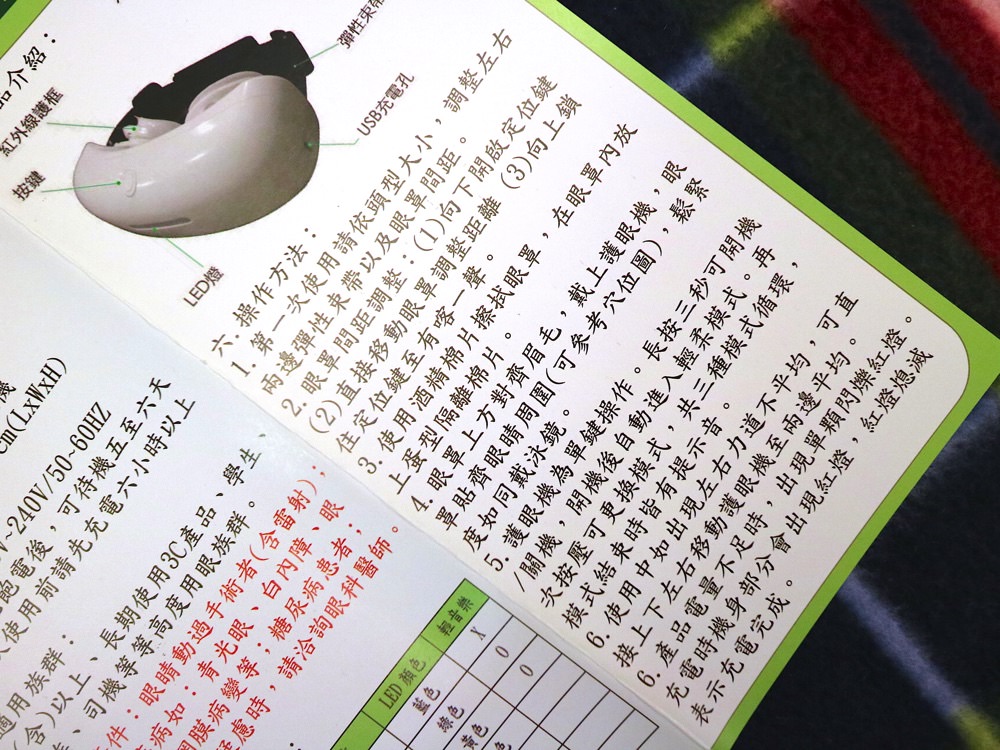 品介紹：
彈性束帶
紅外線護框
USB充電孔
按鍵
LED燈
六、操作方法：
1. 第一次使用請依頭型大小，調整左右
兩邊彈性束帶以及眼罩間距。
2. 眼罩間距調整：(1)向下開啟定位鍵
(2)直接移動眼罩調整距離 (3)向上鎖
住定位鍵至有喀一聲。
3. 使用酒精棉片擦拭眼罩，在眼罩內放
上蛋型隔離棉片。
4. 眼罩上方對齊眉毛，戴上護眼機，眼
罩貼齊眼睛周圍(可參考穴位圖)，鬆緊
度如同戴泳鏡。
5 護眼機為單鍵操作。長按三秒可開機
/關機，開機後自動進入輕柔模式。再
次按壓可更換模式，共三種模式循環，
模式結束時皆有提示音。
6. 使用中如出現左右力道不平均，可直
接上下左右移動護眼機至兩邊平均。
6. 產品電量不足時，出現單顆閃爍紅燈。
充電時機身部分會出現紅燈，紅燈熄滅
表示充電完成。
機
cm(LxWxH)
V~240V/50~60HZ
飽電後，可待機五至六天
使用前請先充電六小時以上
適用族群：
(含)以上、長期使用3C產品、學生、
司機等等高度用眼族群。
件：眼睛動過手術者(含雷射)；
病如：青光眼、白內障、眼
網膜病變等；糖尿病患者；
慮時，請洽詢眼科醫師。
LED 顏色
輕音樂
藍色
X
綠色
0
黃色
0